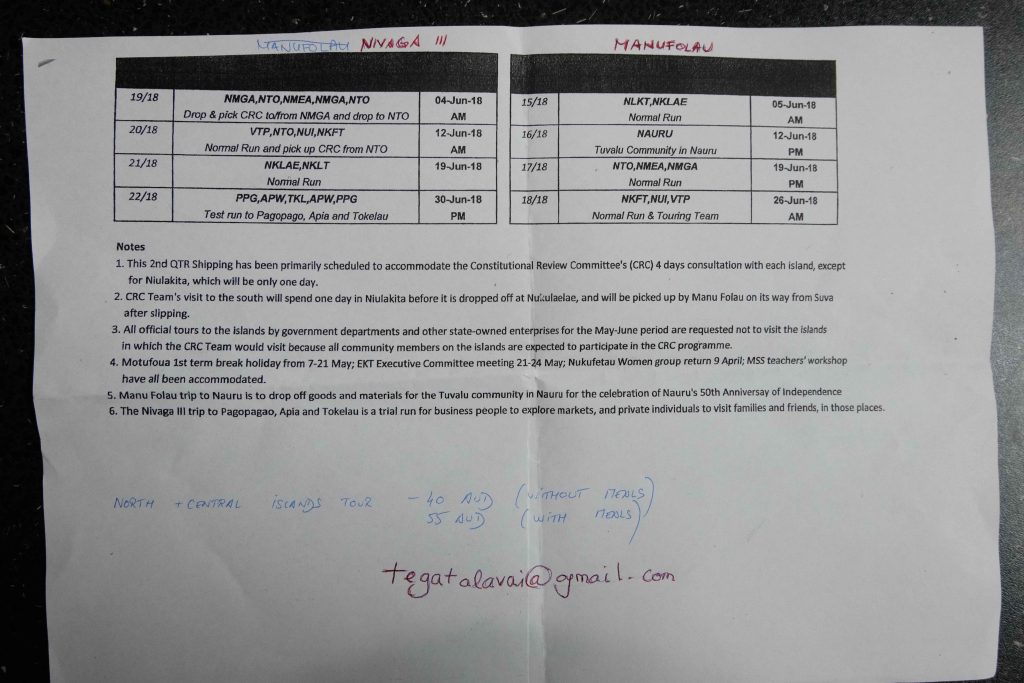 MANUFOLAU NIVAGA III
19/18 NMGA,NTO,NMEA,NMGA,NTO 04-Jun-18
Drop & pick CRC to/from NMGA and drop to NTO AM
20/18 VTP,NTO,NUI,NKFT 12-Jun-18
Normal Run and pick up CRC from NTO AM
21/18 NKLAE,NKLT 19-Jun-18
Normal Run
22/18 PPG,APW,TKL,APW,PPG 30-Jun-18
Test run to Pagopago, Apia and Tokelau PM
MANUFOLAU
15/18 NLKT,NKLAE 05-Jun-18
Normal Run AM
16/18 NAURU 12-Jun-18
Tuvalu Community in Nauru PM
17/18 NTO,NMEA,NMGA 19-Jun-18
Normal Run PM
18/18 NKFT,NUI,VTP 26-Jun-18
Normal Run & Touring Team AM
Notes
1. This 2nd QTR Shipping has been primarily scheduled to accommodate the Constitutional Review Committee's (CRC) 4 days consultation with each island, except
for Niulakita, which will be only one day.
2. CRC Team's visit to the south will spend one day in Niulakita before it is dropped off at Nukulaelae, and will be picked up by Manu Folau on its way from Suva
after slipping.
3. All official tours to the islands by government departments and other state-owned enterprises for the May-June period are requested not to visit the islands
in which the CRC Team would visit because all community members on the islands are expected to participate in the CRC programme.
4. Motufoua 1st term break holiday from 7-21 May; EKT Executive Committee meeting 21-24 May; Nukufetau Women group return 9 April; MSS teachers' workshop
have all been accommodated.
5. Manu Folau trip to Nauru is to drop off goods and materials for the Tuvalu community in Nauru for the celebration of Nauru's 50th Anniversay of Independence
6. The Nivaga III trip to Pagopagao, Apia and Tokelau is a trial run for business people to explore markets, and private individuals to visit families and friends, in those places.
NORTH + CENTRAL ISLANDS TOUR - 40 AUD (WITHOUT MEALS)
55 AUD (WITH MEALS)
tegatalavai@gmail.com